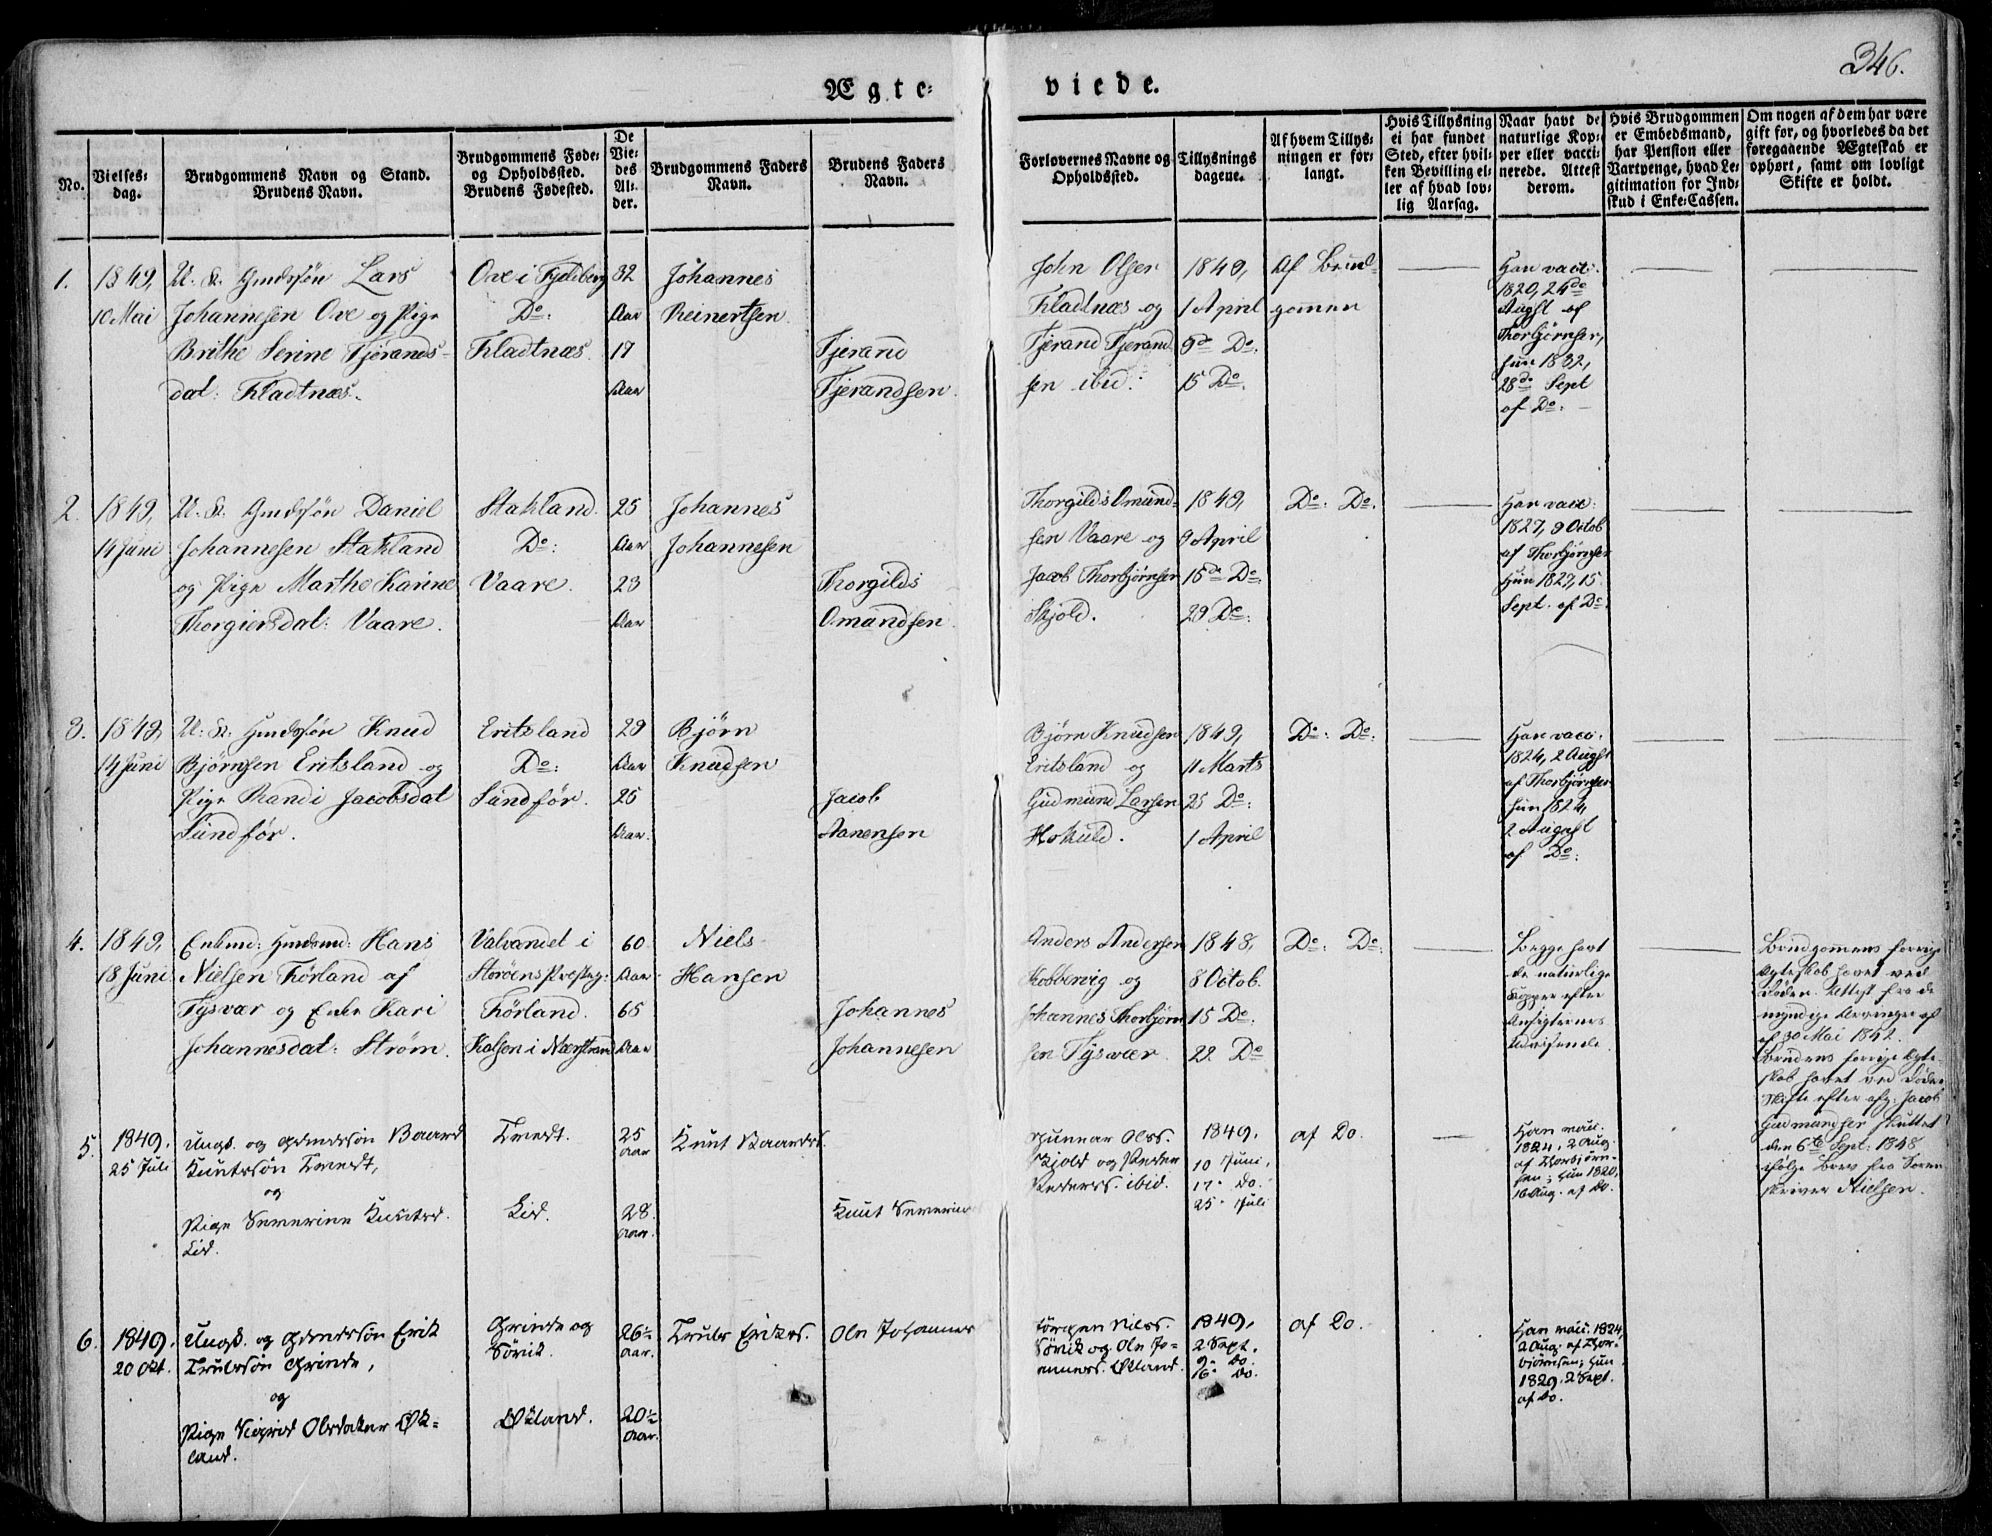 346.
Ægte=
viede.
No.
Vielses=
dag.
Brudgommens Navn og Stand.
Brudens Navn.
Brudgommens Føde=
og Opholdssted.
Brudens Fødested.
De
Vie=
des
Al=
der.
Brudgommens Faders
Navn.
Brudens Faders
Navn.
Forlovernes Navne og
Opholdssted.
Tillysnings
dagene.
Af hvem Tillys=
ningen er for=
langt.
Hvis Tillysning
ei har fundet
Sted, efter hvil=
ken Bevilling el=
ler af hvad lov=
lig Aarsag.
Naar havt de
naturlige Kop=
per eller vacci=
nerede. Attest
derom.
Hvis Brudgommen
er Embedsmand,
har Pension eller
Vartpenge, hvad Le=
gitimation for Ind=
skud i Enke=Cassen.
Om nogen af dem har være
gift før, og hvorledes da det
foregaaende Ægteskab er
ophørt, samt om lovligt
Skifte er holdt.
1.
1849,
10 Mai
U. K. Gmdssøn Lars
Johannesen Oxe og Pige
Brithe Serine Tjerands-
dat: Fladtnæs.
Oxe i Fjeldberg
Do:
Fladtnæs.
32
Aar
17
Aar
Johannes
Reinertsen.
Tjerand
Tjerandsen.
John Olsen
Fladtnæs og
Tjerand Tjerand
sen ibid:
1849,
1 April
9de Do:
15 Do:
Af Brud-
gommen
Han vacc:
1820, 24de
Augst af
Thorbjørnsen,
hun 1832,
28de Sept
af Do:
2.
1849,
14 Juni
U. K. Gmdssøn Daniel
Johannesen Stakland
og Pige Marthe Karine
Thorgiersdat: Vaare.
Stakland.
Do:
Vaare.
25
Aar
23
Aar
Johannes
Johannesen
Thorgilds
Omundsen.
Thorgilds Omund-
sen Vaare og
Jacob Thorbjørnsen
Skjold.
1849,
9 April
15de Do:
29 Do:
Do: Do:
Han vacc:
1827, 9 Octob
af Thorbjørnsen
Hun 1827, 15
Sept. af Do:
3.
1849,
14 Juni
U. K. Gmdssøn Knud
Bjørnsen Eritsland og
Pige Randi Jacobsdat
Sundfør.
Eritsland
Do:
Sundfør.
29
Aar
25
Aar.
Bjørn
Knudsen
Jacob
Aanensen
Bjørn Knudsen
Eritsland og
Gudmund Larsen
Hokuld.
1849,
11 Marts
25 Do:
1 April
Do: Do:
Han vacc:
1824, 2 Augst
af Thorbjørnsen
hun 1824,
2 Augst
af Do:
4.
1849,
18 Juni
Enkmd: Gmdsmd: Hans
Nielsen Førland af
Tysvær og Enke Kari
Johannesdat: Strøm.
Valvandet i
Storøens Præsteg:
Førland.
i Nærstrand
60
Aar
65
Aar
Niels
Hansen
Johannes
Johannesen
Anders Andersen
Kobbervig og
Johannes Thorbjørn
sen Tysvær.
1848,
8 Octob.
15 Do:
22 Do
Do: Do:
Begge havt
de naturlige
Kopper efter
Ansigternes
Udvisende.
Brudgomens forrige
Egteskab hævet ved
Døden. Attest fra de
myndige Arvinger af
af 30 Mai 1842.
Brudens forrige Egte
skab hævet ved Døden
Skifte efter afg: Jacob
Gudmundsen sluttet
den 6te Sept: 1848
ifølge Brev fra Soren
skriver Nielsen.
5.
1849.
25 Juli
Ungk. og Gmdssøn Baard
Knutssøn Tvedt,
og
Pige Severine Knutsd.
Lid.
Tvedt.
Lid.
25
Aar
28.
Aar.
Knut Baards.
Knut Severins
Gunnar Olss.
Skjold og Peder
Peders. ibid.
1849.
10 Juni,
17. Do.
25. Juli
af Do.
Han vacc.
1824, 2 Aug.
af Thorbjørn-
sen; Hun 1820,
16 Aug. af Do.
6.
1849.
20 Okt.
Ungk. og Gmdssøn Erik
Trulssøn Grinde,
og
Pige Sigrid Olsdatter Øk-
land.
Grinde og
Sørvik.
Økland.
26½
Aar.
20½
Aar.
Truls Eriks.
Ole Johannes
Jørgen Nilss.
Sørvik og Ole Jo-
hanness. Økland.
1849,
2 Sept.
9. Do.
16. Do.
af Do.
Han vacc. 1824,
2 Aug. af Thor-
bjørnsen; Hun
1829. 2 Sept.
af Do.